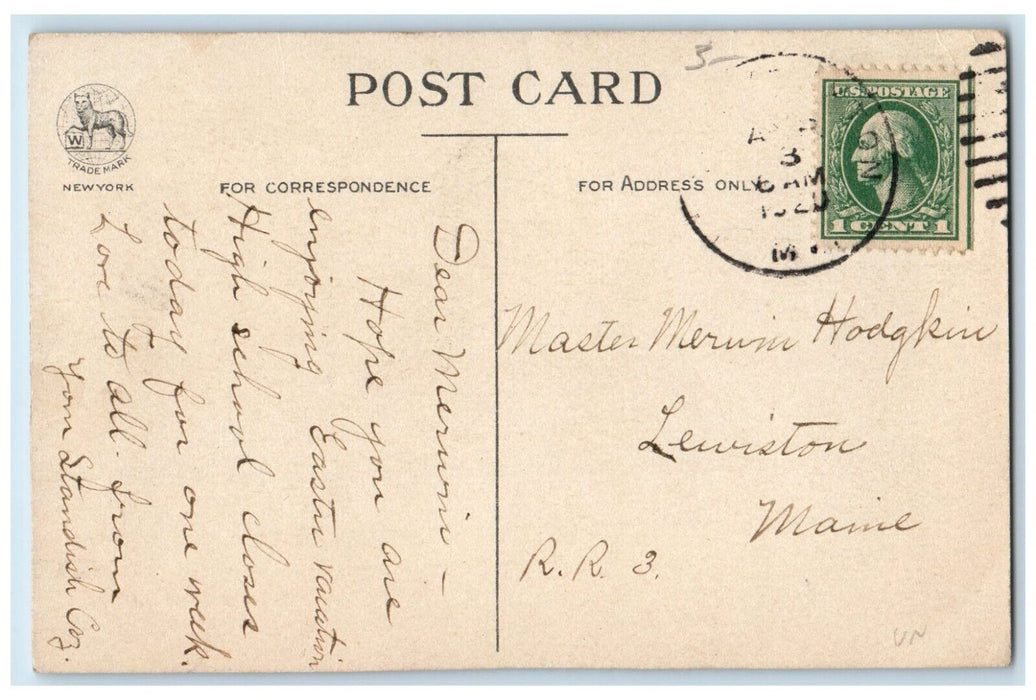 POST CARD
W
TRADE MARK
NEW YORK
FOR CORRESPONDENCE
FOR ADDRESS ONLY
U.S. POSTAGE
1 CENT 1
3
AM
1920
5-
Dear Merwin -
Hope you are
enjoying Easter vacation
High school closes
today for one week.
Love to all. from
your Standish Coz.
Master Merwin Hodgkin
Lewiston
Maine
R. R. 3.
VN